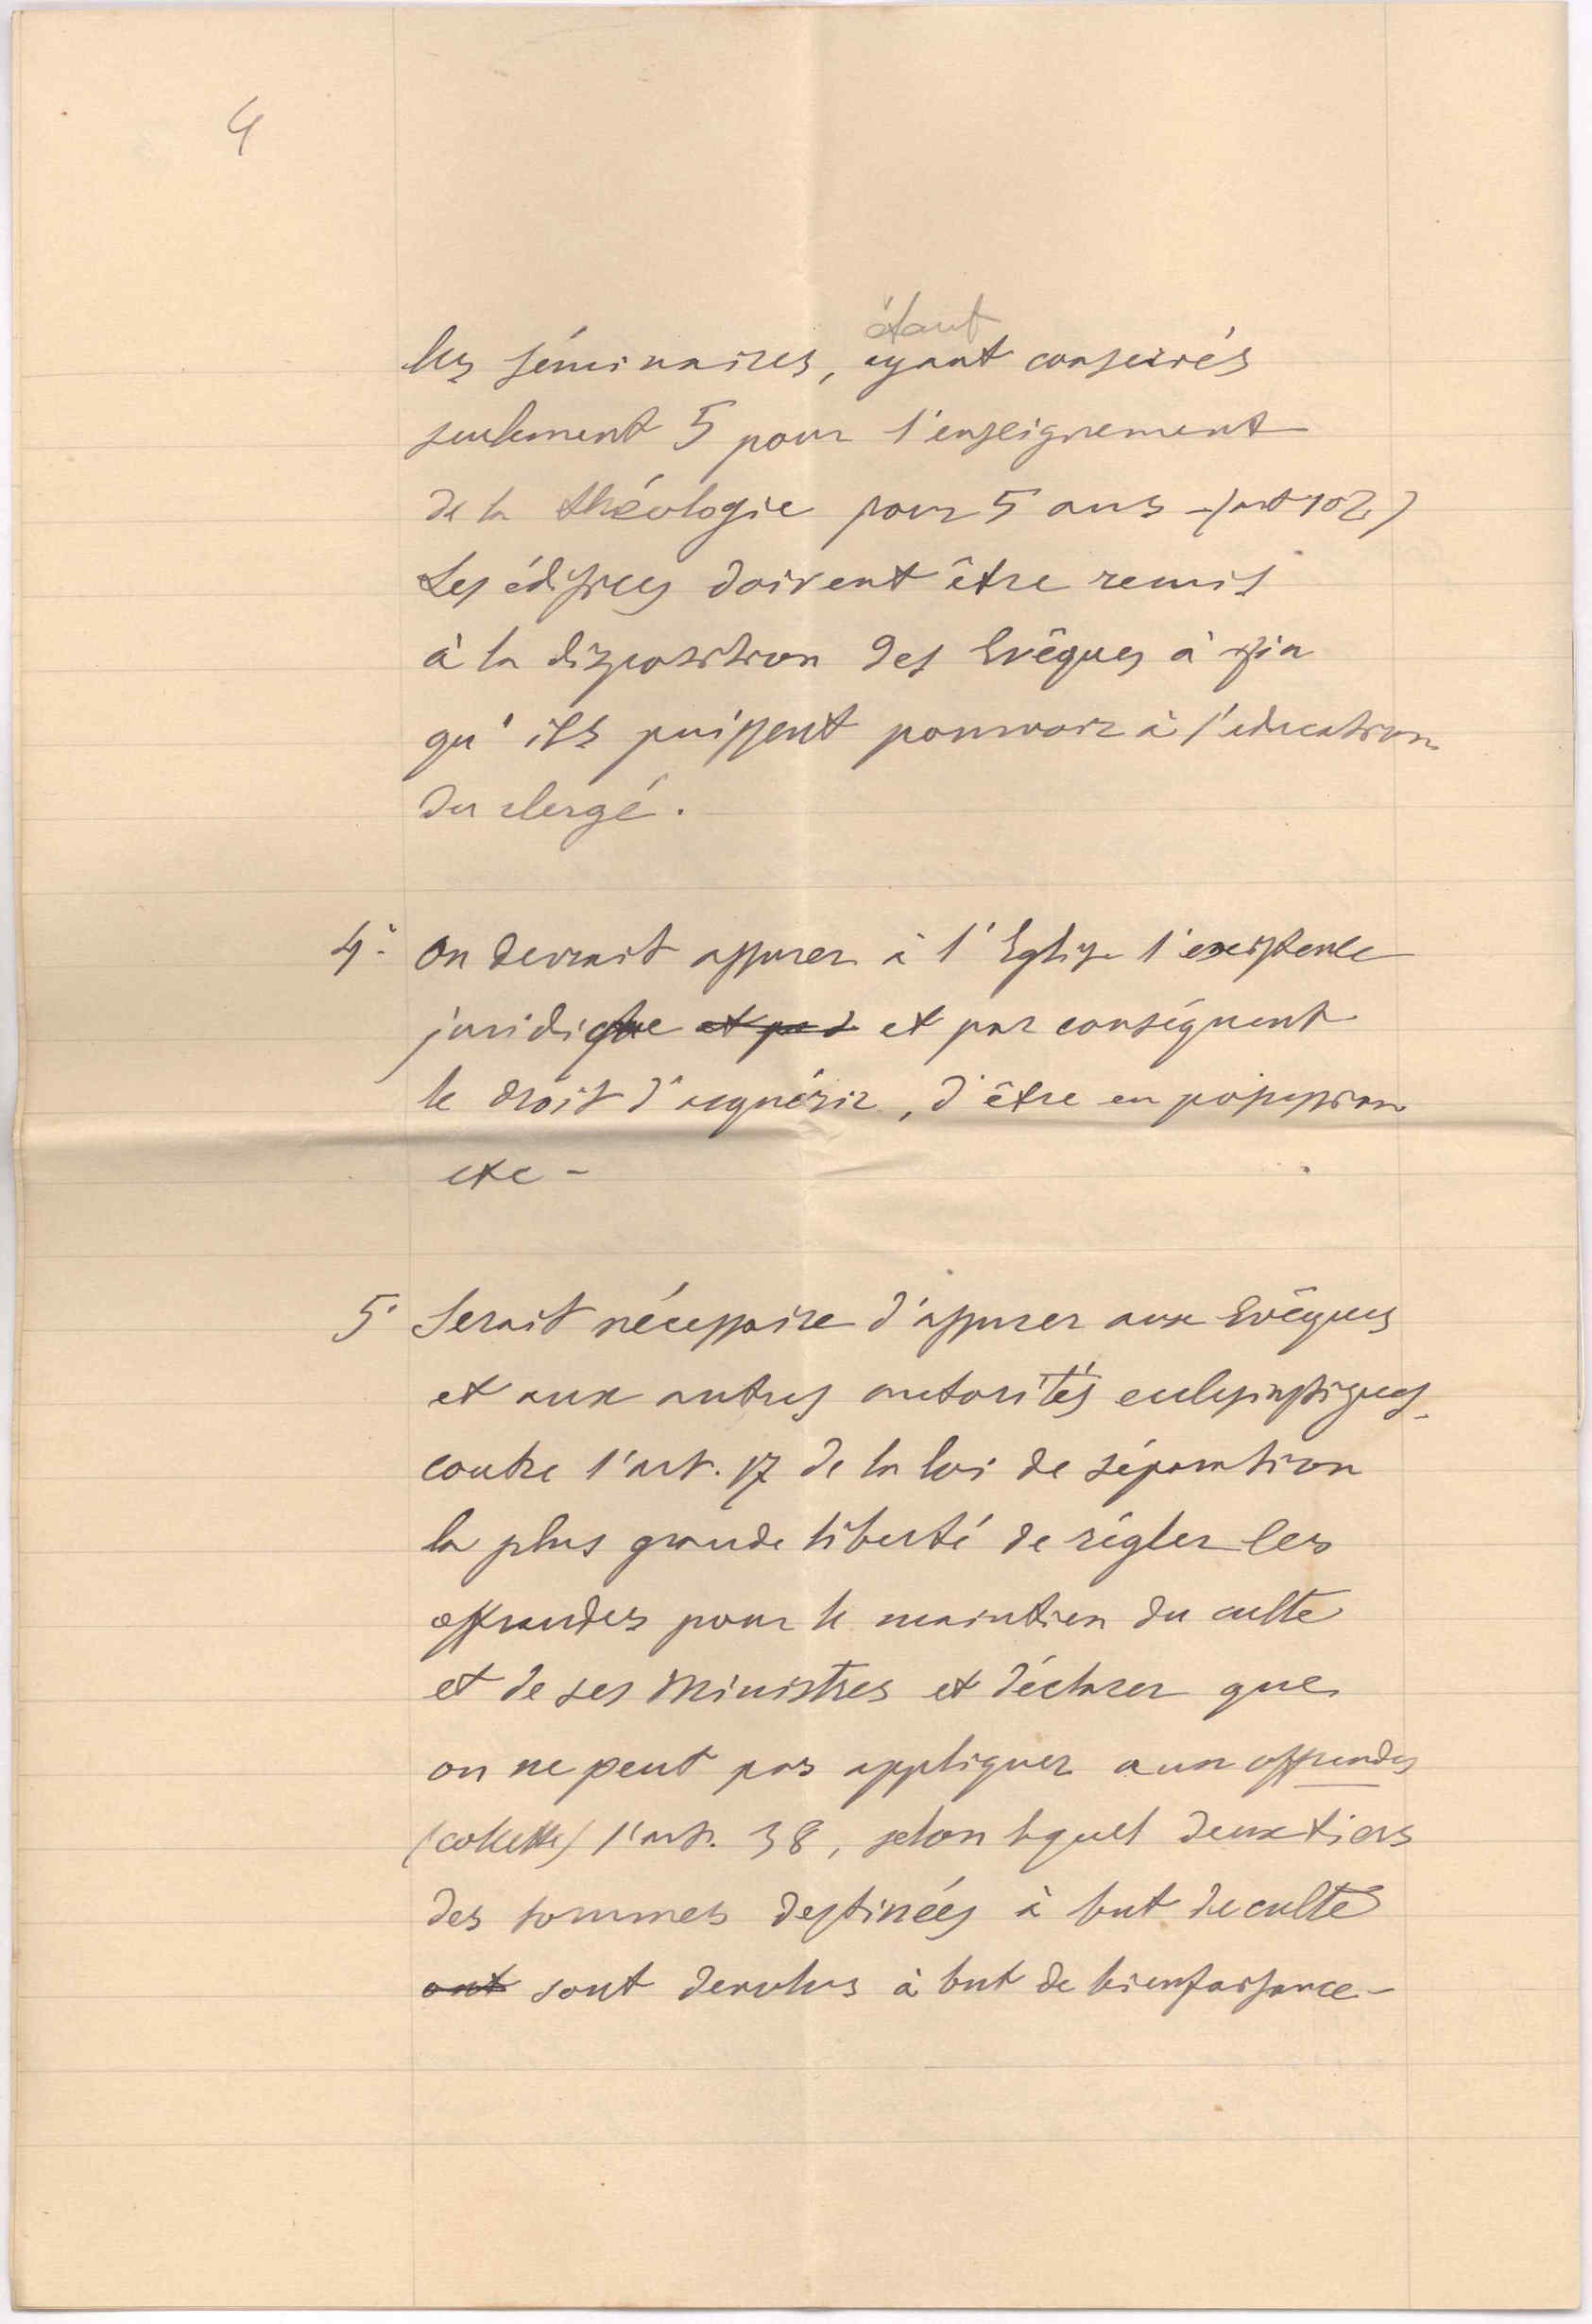 4
étant
les séminaires, ayant conservés
seulement 5 pour l'enseignement
de la théologie pour 5 ans - (art 102)
Les édifices doivent être remis
à la disposition des Evêques à fin
qu'ils puissent pourvoir à l'education
du clergé.
4° On devrait assurer à l'Eglise l'existence
juridique et par conséquent
le droit d'acquérir, d'être en possession
etc -
5° Serait nécessaire d'assurer aux Evêques
et aux autres autorités ecclesiastiques
contre l'art. 17 de la loi de séparation
la plus grande liberté de régler les
offrandes pour le maintien du culte
et de ses Ministres et déclarer que
on ne peut pas appliquer aux offrandes
(collette) l'art. 38, selon lequel deux tiers
des sommes destinées à but de culte
ont sont devolus à but de bienfaisance -